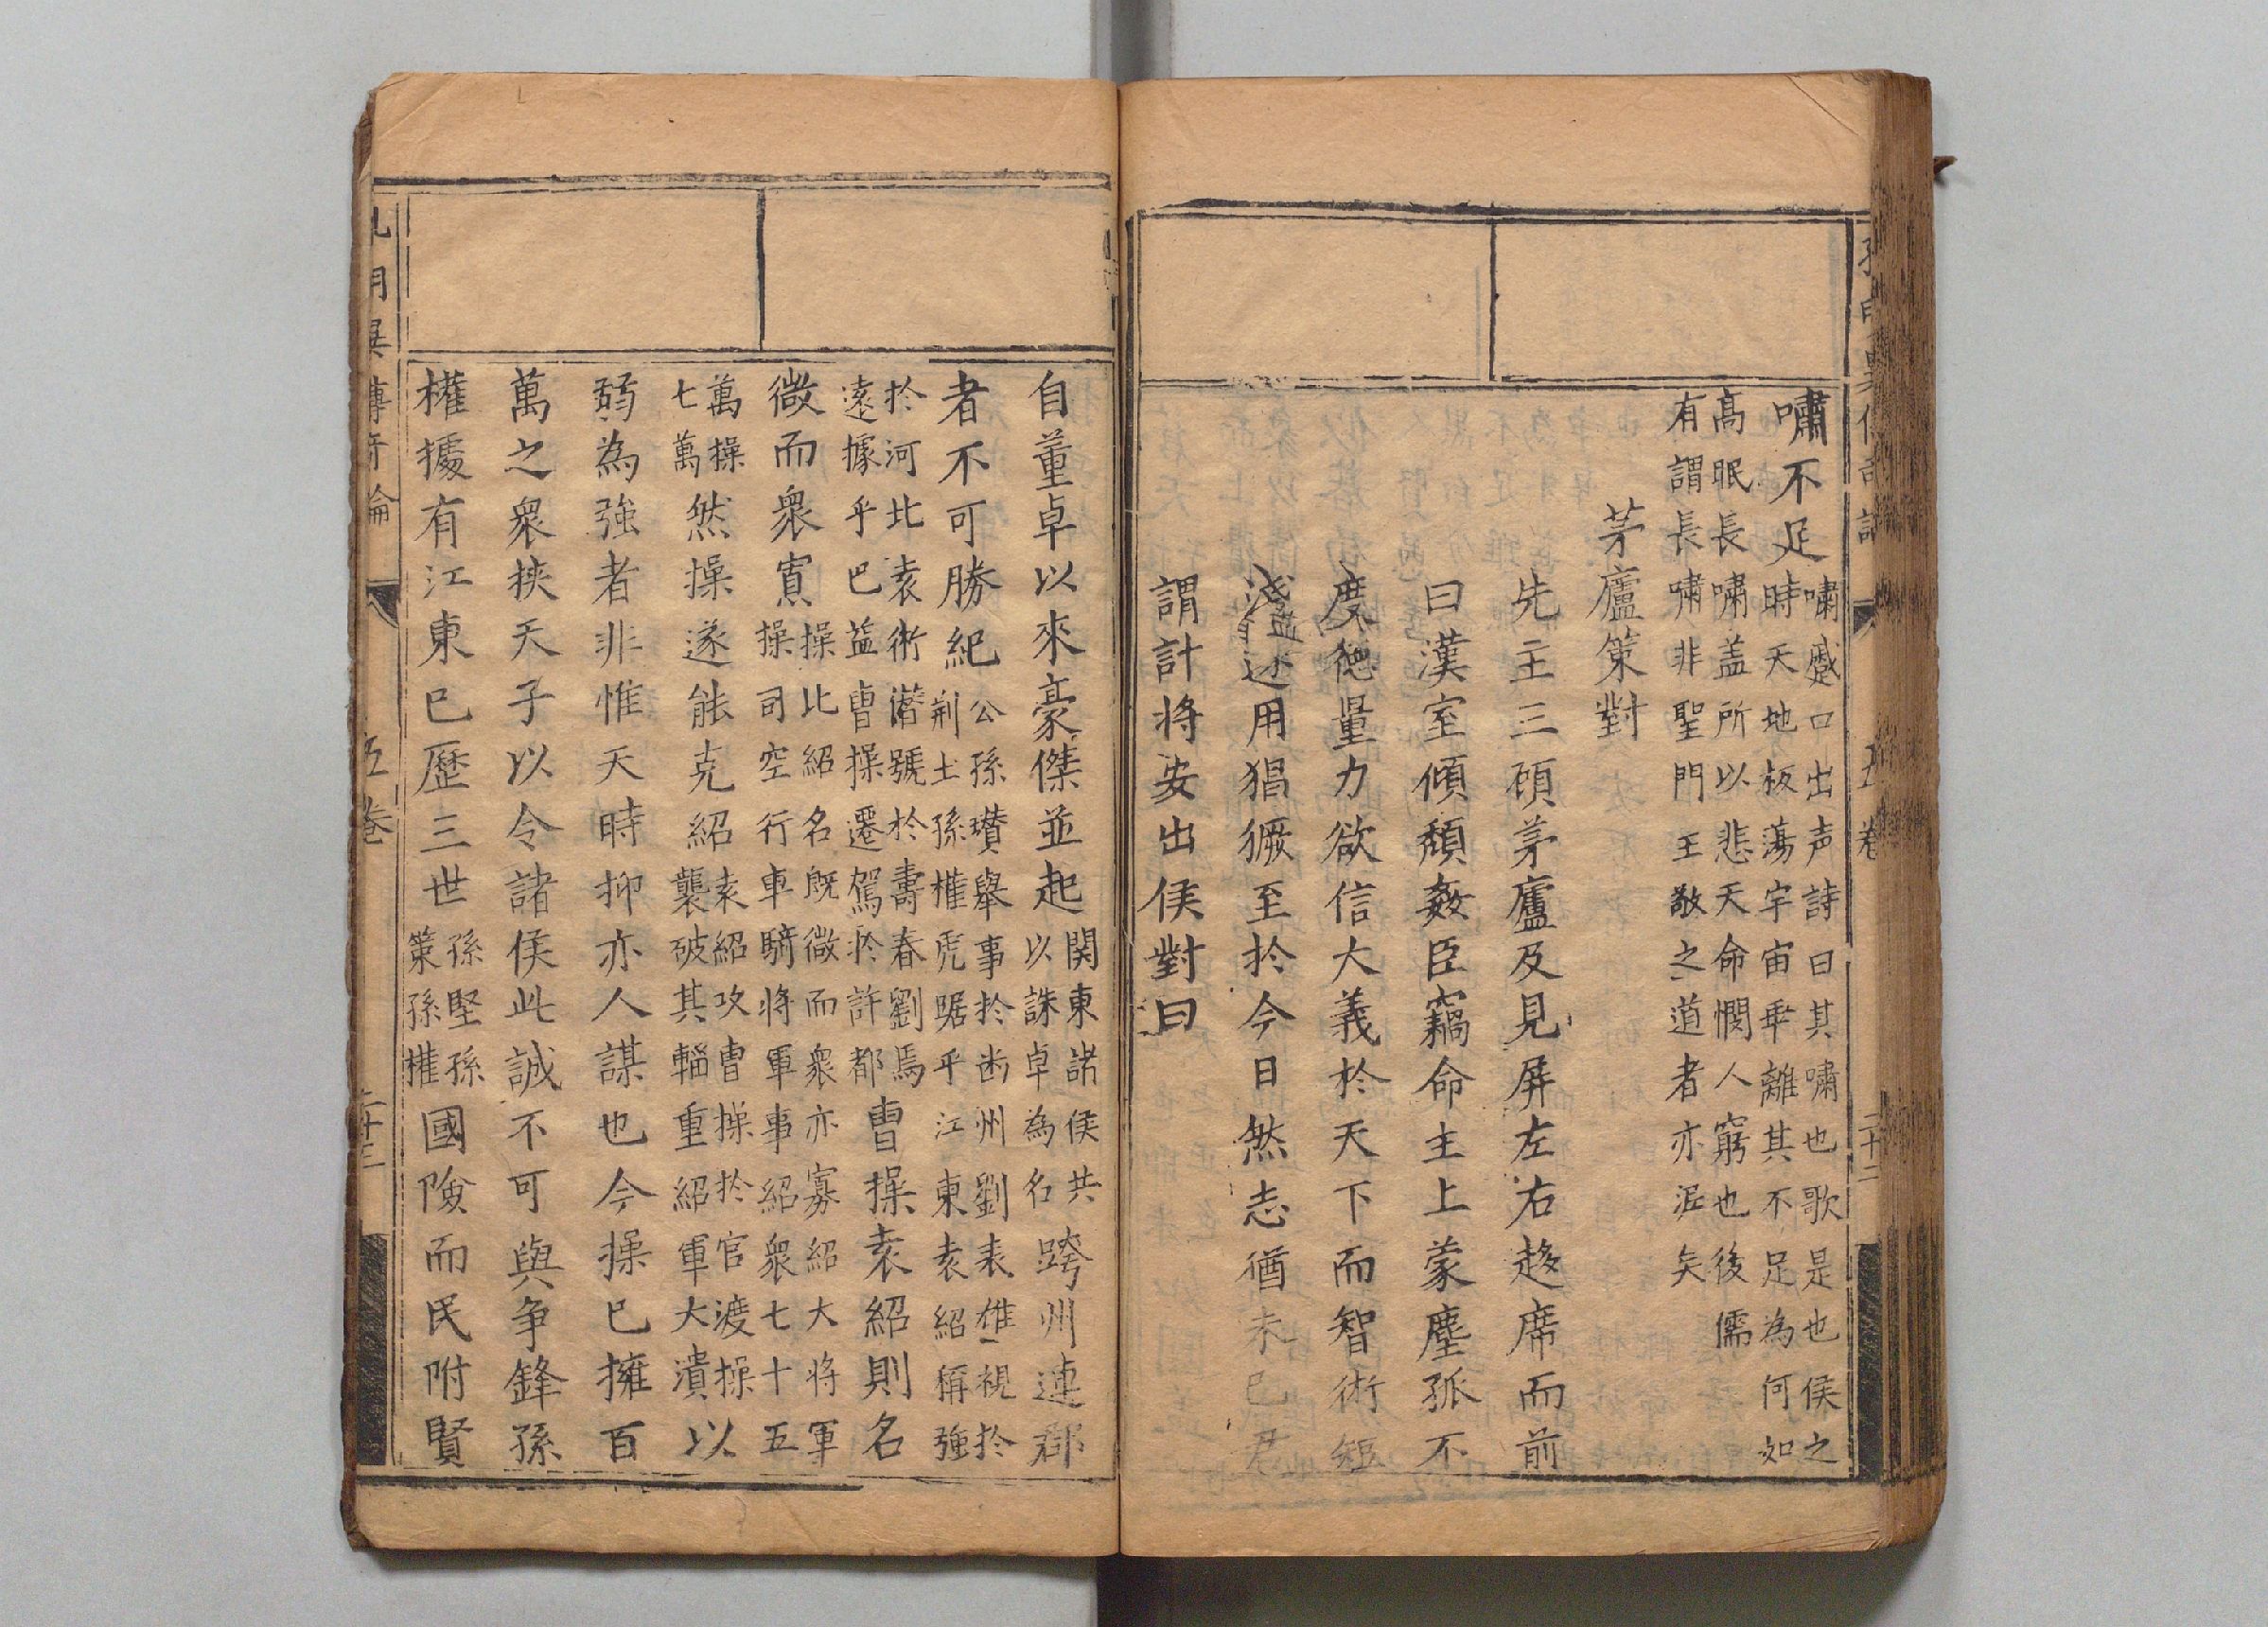 嘯不足嘯蹙口出声詩曰其嘯也歌是也侯之
時天地板蕩宇宙乖離其不足為何如
高眠長嘯盖所以悲天命憫人窮也後儒
有謂長嘯非聖門王敬之道者亦泥矣
茅廬策對
先主三顧茅廬及見屏左右趍席而前
曰漢室傾頹姦臣竊命主上蒙塵孤不
度德量力欲信大義於天下而智術短
淺遂用猖獗至於今日然志猶未已君
謂計将安出侯對曰
自董卓以來豪傑並起関東諸侯共
以誅卓為名跨州連郡
者不可勝紀公孫瓚舉事於幽州劉表雄視於
荆土孫權虎踞乎江東袁紹稱強
於河北袁術潜號於壽春劉焉
遠據乎巴益曹操遷駕於許都曹操袁紹則名
微而衆寡操比紹名既微而衆亦寡紹大将軍
操司空行車騎将軍事紹衆七十五
萬操
七萬然操遂能克紹袁紹攻曹操於官渡操
襲破其輜重紹軍大潰以
弱為強者非惟天時抑亦人謀也今操已擁百
萬之衆挾天子以令諸侯此誠不可與争鋒孫
權據有江東已歷三世孫堅孫
策孫權國險而民附賢
五卷
二十三
卷
二十二